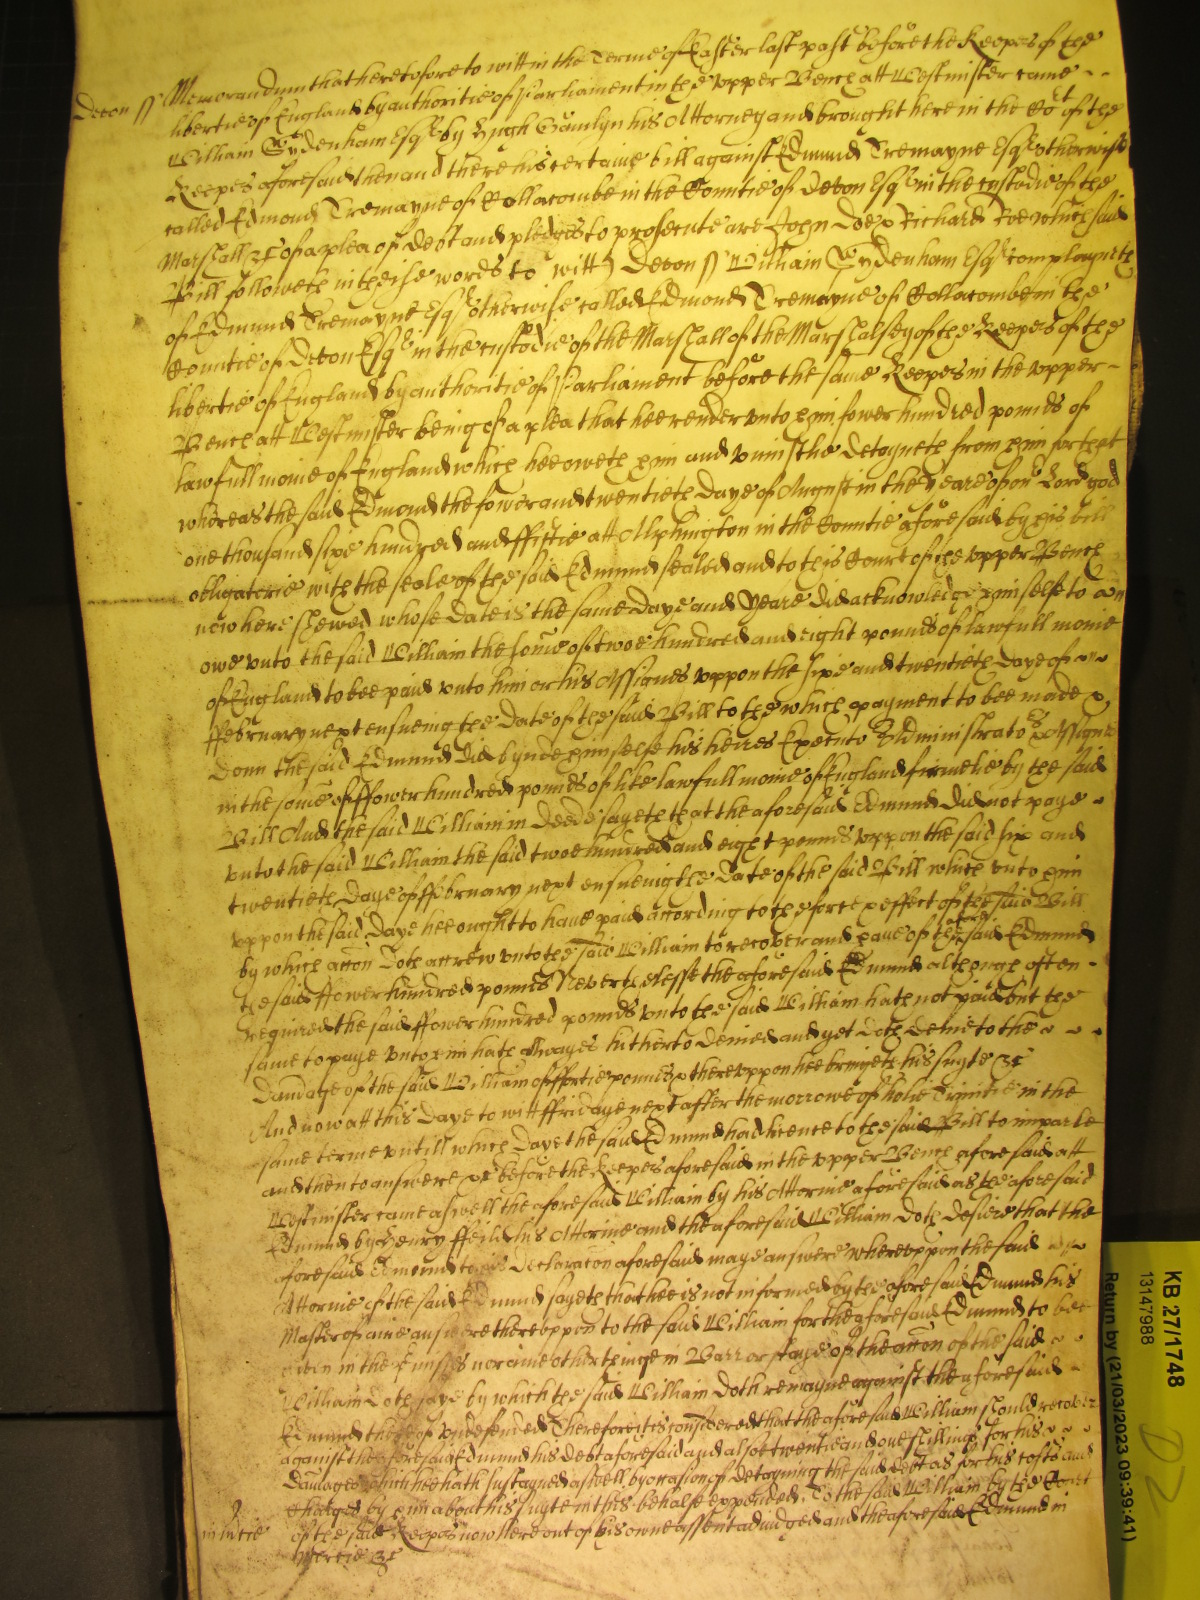 Devon ss Memorandum that heretofore to witt in the Terme of Easter last past before the Keepers of the
libertie of England by authoritie of Parliament in the upper Bench att Westminster came
William Sydenham Esqr by Hugh his Attorney and brought here in the Cort of the
Keepers aforesaid then and there his certaine bill against Edmund Tremayne Esqr otherwise
called Edmond Tremayne of Collacombe in the Countie of Devon Esqr in the custodie of the
Marshall &c of a plea of debt and pledges to prosecute are John Doe & Richard Roe which said
Bill followeth in theise words to witt Devon ss William Sydenham Esqr complayneth
of Edmund Tremayne Esqr otherwise called Edmond Tremayne of Collacombe in the
Countie of Devon Esqr in the custodie of the Marshall of the Marshalsey of the Keepers of the
libertie of England by authoritie of Parliament before the same Keepers in the upper
Bench att Westminster being of a plea that hee render unto him fower hundred pounds of
lawfull monie of England which hee oweth him and uniustlie detayneth from him for that
whereas the said Edmond the fower and twentieth daye of August in the yeare of our Lord god
one thousand sixe hundred and ffiftie att Alphington in the Countie aforesaid by his bill
obligatorie with the seale of the said Edmund sealed and to this Court of the upper Bench
now here shewed whose date is the same daye and yeare did acknowledge himselfe to
owe unto the said William the some of twoe hundred and eight pounds of lawfull monie
of England to bee paid unto him or his Assignes uppon the sixe and twentieth daye of
ffebruary next ensueing the date of the said Bill to the which payment to bee made &
donn the said Edmund did bynde himselfe his heires Executors Administrators & Assignes
in the some of ffower hundred pounds of like lawfull monie of England firmelie by the said
Bill And the said William in deede sayeth that the aforesaid Edmund did not paye
unto the said William the said twoe hundred and eight pounds uppon the said six and
twentieth daye of ffebruary next ensueing the date of the said Bill which unto him
uppon the said daye hee ought to have paid according to the force & effect of the said Bill
by which accon doth accrew unto the said William to recover and have of the aforesaid Edmund
the said ffower hundred pounds Neverthelesse the aforesaid Edmund although often
required the said ffower hundred pounds unto the said William hath not paid but the
same to paye unto him hath allwayes hitherto denied and yet doth denie to the
damage of the said William of ffortie pounds & thereuppon hee bringeth his suyte &c
And now att this daye to witt ffridaye next after the morrowe of holie Trinitie in the
same terme untill which daye the said Edmund had licence to the said Bill to imparle
and then to answere &c before the Keepers aforesaid in the upper Bench aforesaid att
Westminster came aswell the aforesaid William by his Attornie aforesaid as the aforesaid
Edmund by Henry ffeild his Attornie and the aforesaid William doth desiere that the
aforesaid Edmound to his declaracon aforesaid maye answere whereuppon the said
Attornie of the said Edmund sayeth that hee is not informed by the aforesaid Edmund his
Master of anie answere thereuppon to the said William for the aforesaid Edmund to bee
given in the premisses nor anie other thinge in Barr or staye of the accon of the said
William doth saye by which the said William doth remayne against the aforesaid
Edmund thereof undefended Therefore it is considered that the aforesaid William should recover
against the aforesaid Edmund his debt aforesaid and alsoe twentie and one shillings for his
damages which hee hath sustayned aswell by occasion of detayning the said debt as for his costs and
charges by him about his suyte in this behalfe expended. To the said William by the Court
of the said Keepers now here out of his owne assent adiudged and the aforesaid Edmund in
mercie &c
in mercie
KB 27/1748
13147988
Return by (21/03/2023 09:39:41)
D2